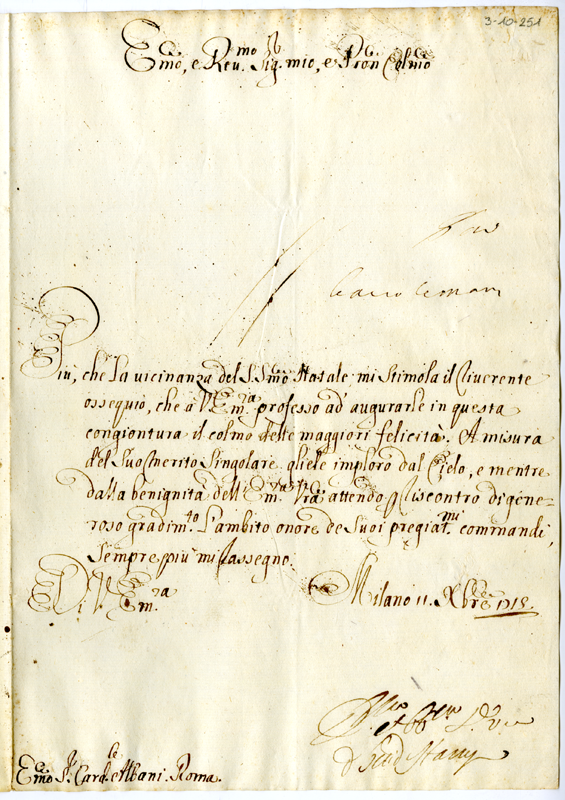 3-10-251
Emo, e Reu.mo Sig. mio, e Pron Colmo
Più, che la vicinanza del S.Smo Natale mi stimola il riverente
ossequio, che a V Em.za professo ad' augurarle in questa
congiontura il colmo delle maggiori felicità. A misura
del Suo merito Singolare gliele imploro dal Cielo, e mentre
dalla benignità dell' Em.za Vra attendo p riscontro di gene=
roso gradim.to l'ambito onore de Suoi pregiat.mi commandi,
sempre più mi rassegno.
Di V Em.za Milano 11. Xbre 1718.
Emo S.r Card.le Albani. Roma.